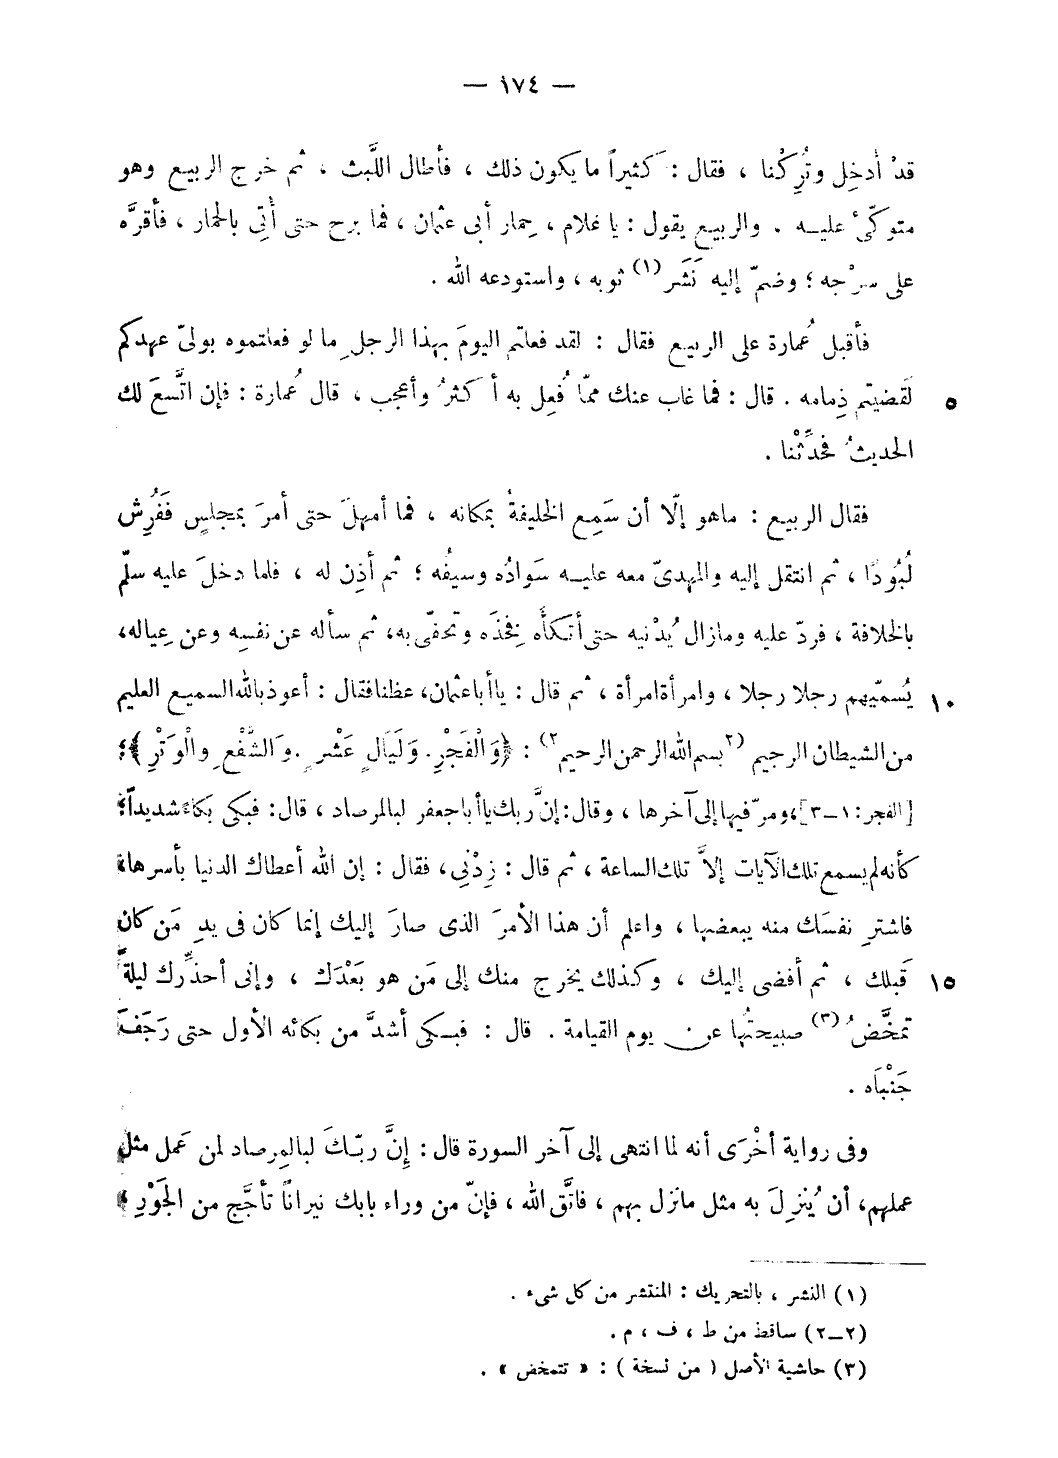 — ١٧٤ —
قدْ أُدخِل وتُرِكْنا ، فقال : كثيراً ما يكون ذلك ، فأطال اللَّبث ، ثم خرج الربيع وهو
متوكّئ عليه . والربيع يقول : يا غلام ، حِمار أبى عثمان ، فما برح حتى أُتِّى بالحمار ، فأقرَّه
على سرْجه ؛ وضمّ إليه نَشَر (١) ثوبه ، واستودعه الله .
فأقبل عُمارة على الربيع فقال : لقد فعلتم اليومَ بهذا الرجلِ ما لو فعلتموه بولىّ عهدكم
لَقضيتم ذِمامه . قال : فما غاب عنك ممّا فُعِل به أكثرُ وأعجب ، قال عُمارة : فإن اتَّسعَ لك
٥
الحديثُ فحدِّثْنا .
فقال الربيع : ماهو إلّا أن سَمِع الخليفةُ بمكانه ، فما أمهلَ حتى أمرَ بمجلسٍ فَفُرِش
لُبُودًا ، ثم انتقل إليه والمهدىّ معه عليه سَوادُه وسيفُه ؛ ثم أذِن له ، فلما دخلَ عليه سلّم
بالخلافة ، فردّ عليه ومازال يُدْنيه حتى أتكأَه فِخذَه وتحفّى به، ثم سأله عن نفسِه وعن عِياله،
يُسمّيهم رجلا رجلا ، وامرأة امرأة ، ثم قال : يا أبا عثمان، عظنا فقال : أعوذ بالله السميع العليم
١٠
من الشيطان الرجيم (٢ بسم الله الرحمن الرحيم ٢) : ﴿وَالْفَجْرِ. وَلَيَالٍ عَشْرٍ. وَالشَّفْعِ والْوَتْرِ﴾؛
[الفجر: ١ــ٣]، ومرّ فيها إلى آخرها ، وقال: إنَّ ربك يا أبا جعفر لبالمرصاد ، قال: فبكى بكاءً شديداً؛
كأنه لم يسمع تلك الآيات إلاَّ تلك الساعة ، ثم قال : زِدْنِى، فقال : إن الله أعطاك الدنيا بأسرها؛
فاشترِ نفسَك منه ببعضها ، واعلم أن هذا الأمرَ الذى صارَ إليك إنما كان فى يدِ مَن كان
قَبلك ، ثم أفضى إليك ، وكذلك يخرج منك إلى مَن هو بَعْدَك ، وإنى أحذِّرك ليلةً
١٥
تمخَّضُ (٣) صبيحتُها عن يوم القيامة . قال : فبكى أشدَّ من بكائه الأول حتى رَجَفَ
جَنْبَاه .
وفى رواية أخْرَى أنه لما انتهى إلى آخر السورة قال : إنَّ ربّكَ لبالمِرصاد لمن عَمل مثل
عملهم، أن يُنزِلَ به مثل مانزل بهم ، فاتَّق الله ، فإنّ من وراء بابك نيراناً تأجَّج من الجَوْرِ ،
(١) النشر ، بالتحريك : المنتشر من كل شىء .
(٢ــ٢) ساقط من ط ، ف ، م .
(٣) حاشية الأصل ( من نسخة ) : « تتمخض » .